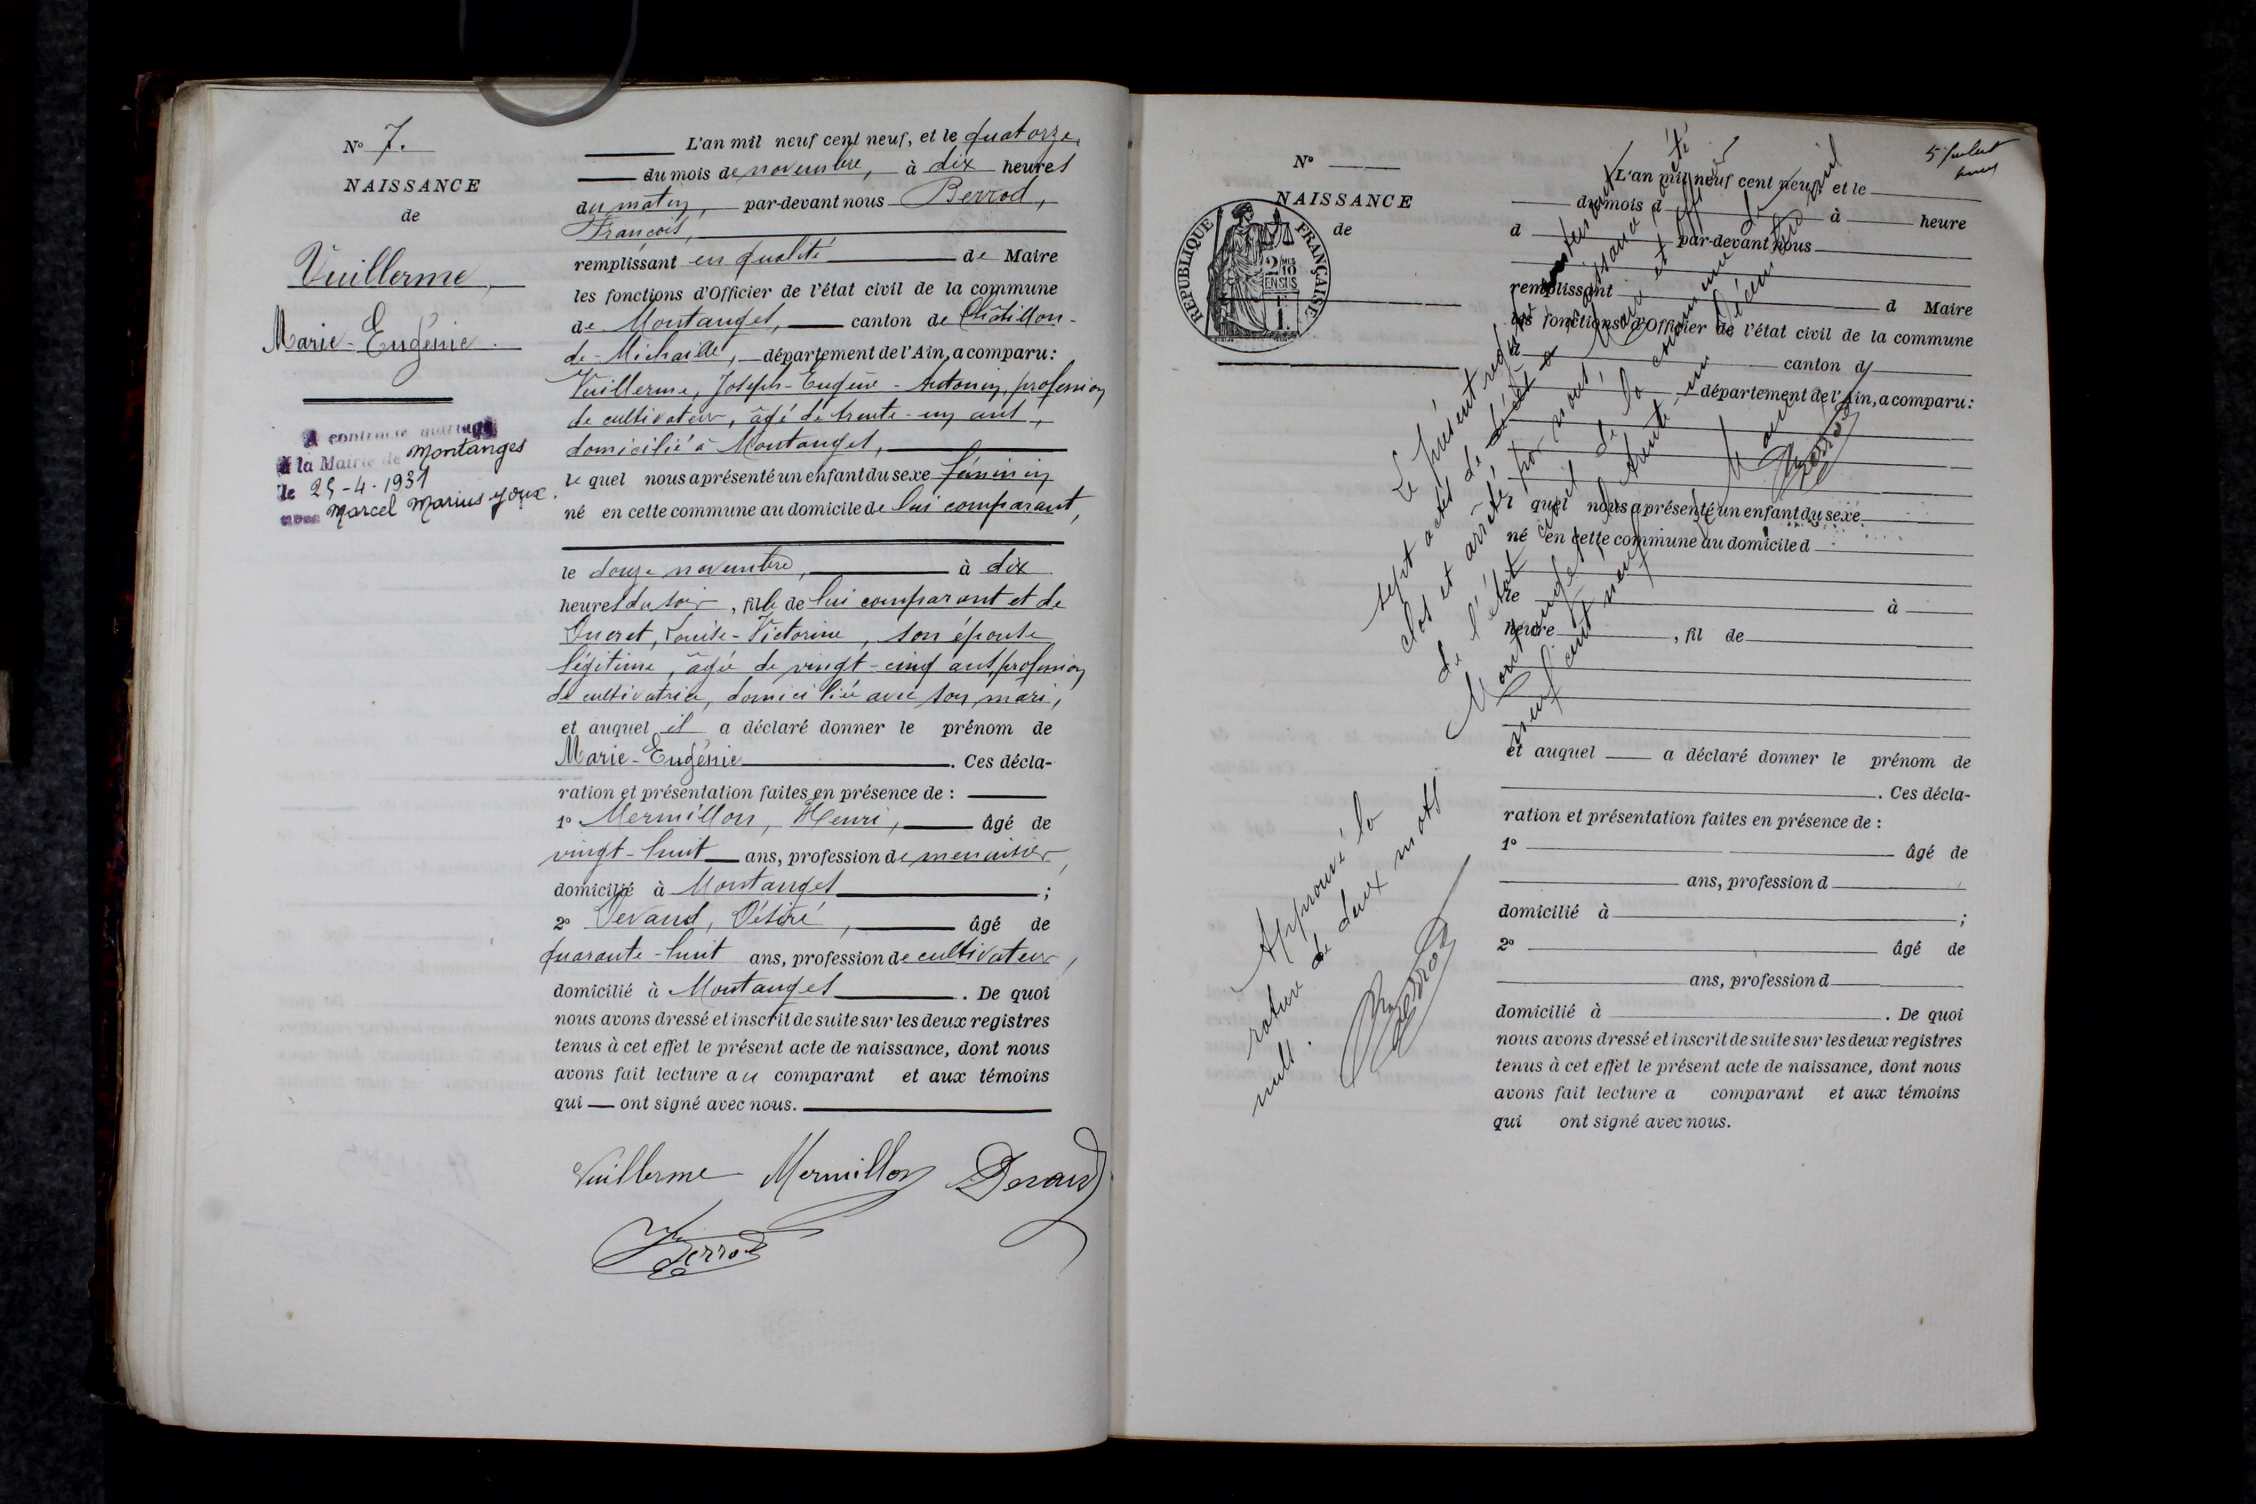 N° 7.
NAISSANCE
de
Vuillerme,
Marie-Eugénie.
A contracté mariage
à la Mairie de Montanges
le 25-4-1931
avec Marcel Marius Joux.
L'an mil neuf cent neuf, et le quatorze,
du mois de novembre, à dix heures
du matin, par-devant nous Berrod,
François,
remplissant en qualité de Maire
les fonctions d'Officier de l'état civil de la commune
de Montanges, canton de Châtillon-
de-Michaille, département de l'Ain, a comparu:
Vuillerme, Joseph-Eugène-Antonin, profession
de cultivateur, âgé de trente-un ans,
domicilié à Montanges,
lequel nous a présenté un enfant du sexe féminin
né en cette commune au domicile de lui comparant,
le douze novembre, à dix
heures du soir, fille de lui comparant et de
Ducret, Louise-Victorine, son épouse
légitime, âgée de vingt-cinq ans, profession
de cultivatrice, domiciliée avec son mari,
et auquel il a déclaré donner le prénom de
Marie-Eugénie. Ces décla-
ration et présentation faites en présence de :
1° Mermillon, Henri, âgé de
vingt-huit ans, profession de menuisier,
domicilié à Montanges ;
2° Devaud, Désiré, âgé de
quarante-huit ans, profession de cultivateur,
domicilié à Montanges. De quoi
nous avons dressé et inscrit de suite sur les deux registres
tenus à cet effet le présent acte de naissance, dont nous
avons fait lecture au comparant et aux témoins
qui ont signé avec nous.
Vuillerme Mermillon Devaud
Berrod
5e
N°
NAISSANCE
de
REPUBLIQUE FRANÇAISE
2/10 EN SUS
L'an mil neuf cent neuf, et le
du mois d à heure
d par-devant nous
remplissant d Maire
les fonctions d'Officier de l'état civil de la commune
d canton d
département de l'Ain, a comparu:
quel nous a présenté un enfant du sexe
né en cette commune au domicile d
le à
heure , fil de
et auquel a déclaré donner le prénom de
. Ces décla-
ration et présentation faites en présence de :
1° âgé de
ans, profession d
domicilié à ;
2° âgé de
ans, profession d
domicilié à . De quoi
nous avons dressé et inscrit de suite sur les deux registres
tenus à cet effet le présent acte de naissance, dont nous
avons fait lecture a comparant et aux témoins
qui ont signé avec nous.
Le présent registre contenant
sept actes de naissance a été
clos et arrêté par nous, Maire et officier
de l'état civil de la commune de
Montanges, le trente un Décembre mil
neuf cent neuf.
Le Maire
Berrod
Approuvé la
rature de deux mots
nuls.
Berrod